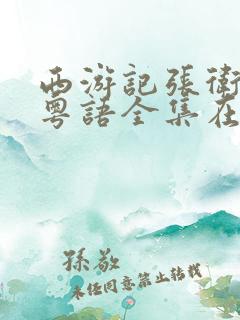 西游記張衛
粵語全集在
孫敬
未任同意禁止轉載